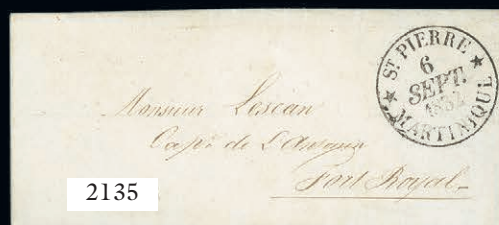 ST. PIERRE
6
SEPT.
MARTINIQUE
Monsieur Lescan
Cap.ne de L'
Fort Royal
2135